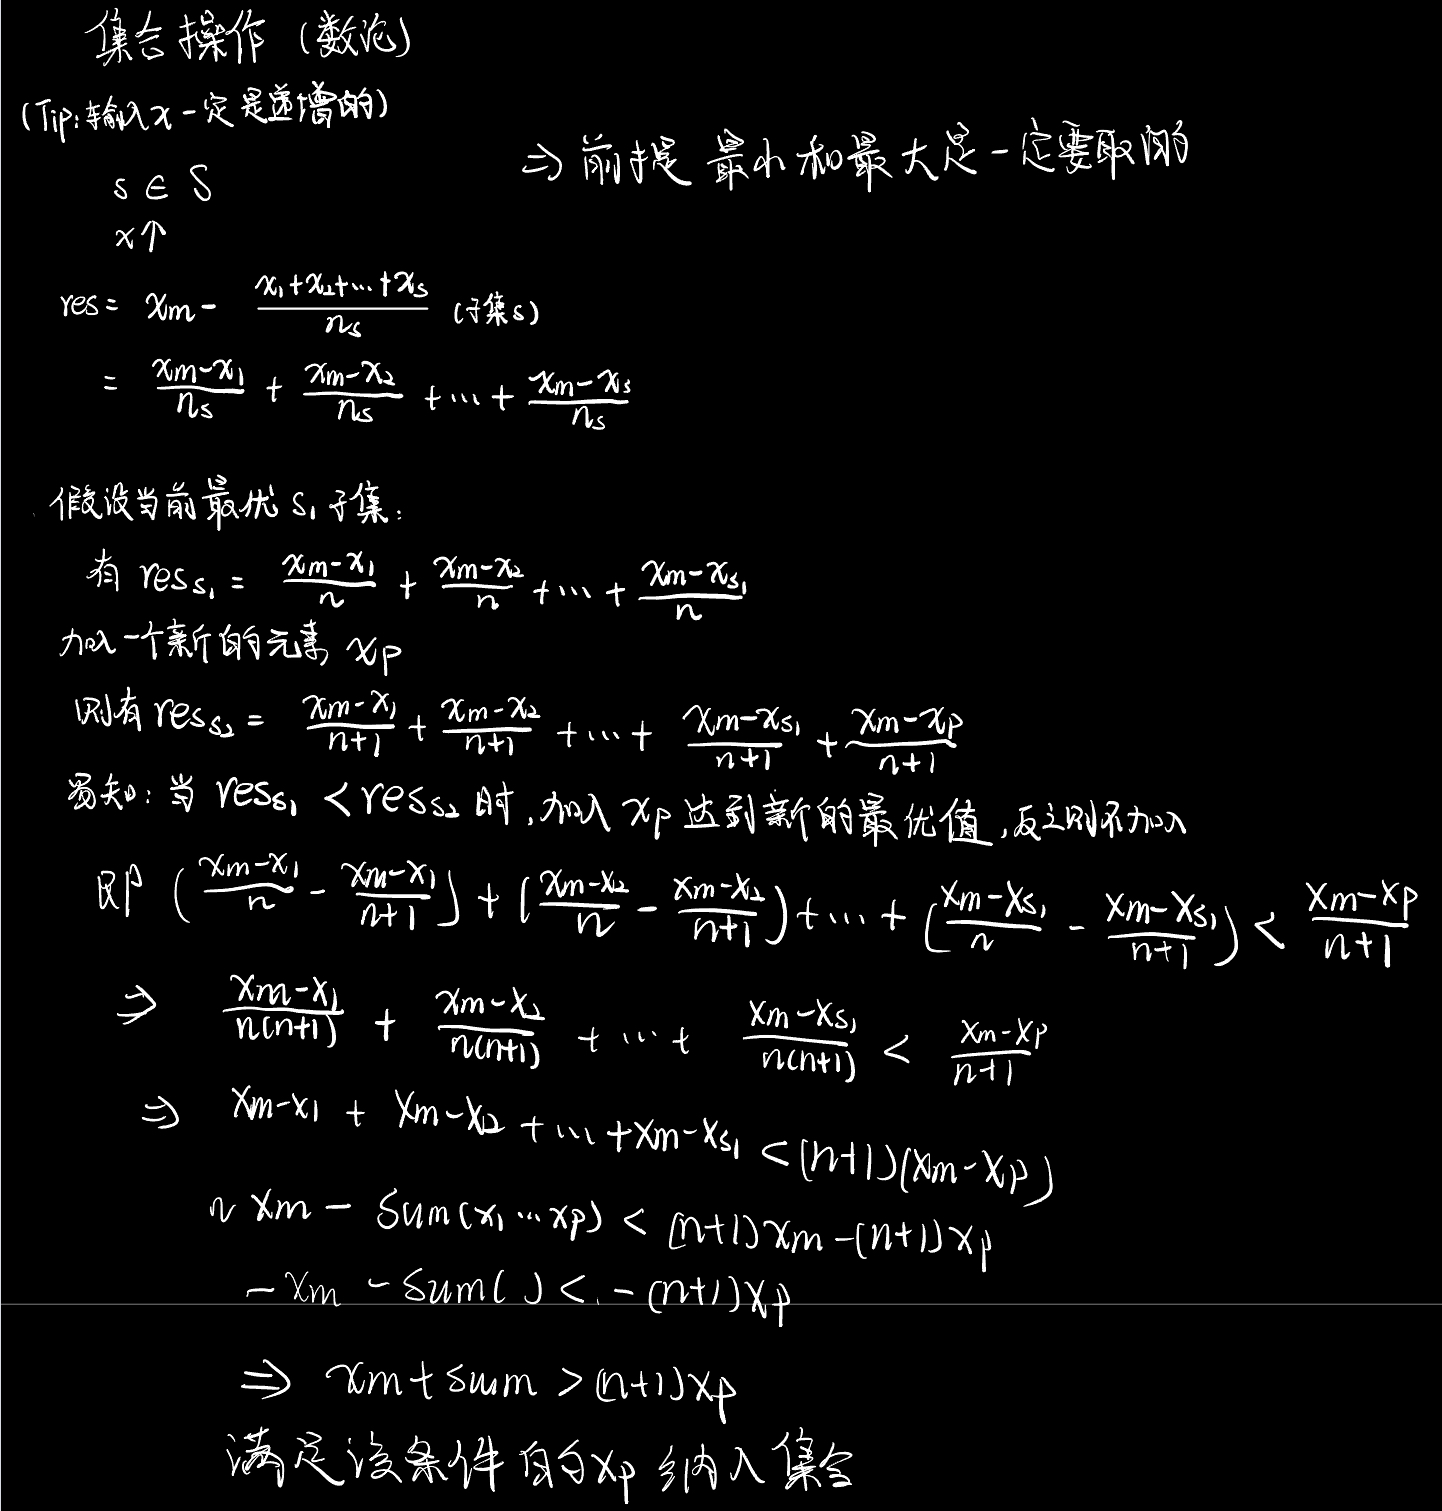 集合操作 (数论)
(Tip:输入x一定是递增的)
⇒ 前提 最小和最大是一定要取的
s ∈ S
x↑
res = xm - (x1+x2+…+xs)/ns (子集s)
= (xm-x1)/ns + (xm-x2)/ns + … + (xm-xs)/ns
假设当前最优 S1 子集:
有 res_s1 = (xm-x1)/n + (xm-x2)/n + … + (xm-xs1)/n
加入一个新的元素 xp
则有 res_s2 = (xm-x1)/(n+1) + (xm-x2)/(n+1) + … + (xm-xs1)/(n+1) + (xm-xp)/(n+1)
易知: 当 res_s1 < res_s2 时, 加入 xp 达到新的最优值, 反之则不加入
即 ((xm-x1)/n - (xm-x1)/(n+1)) + ((xm-x2)/n - (xm-x2)/(n+1)) + … + ((xm-xs1)/n - (xm-xs1)/(n+1)) < (xm-xp)/(n+1)
⇒ (xm-x1)/(n(n+1)) + (xm-x2)/(n(n+1)) + … + (xm-xs1)/(n(n+1)) < (xm-xp)/(n+1)
⇒ xm-x1 + xm-x2 + … + xm-xs1 < (n+1)(xm-xp)
n xm - sum(x1…xp) < (n+1)xm-(n+1)xp
-xm - sum( ) < -(n+1)xp
⇒ xm + sum > (n+1)xp
满足该条件的xp 纳入集合